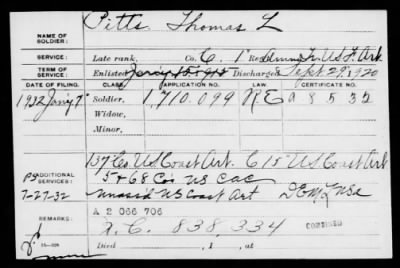 NAME OF SOLDIER: Pitts Thomas L
SERVICE: Late rank, Co. C, 1 Reg't Art
TERM OF SERVICE: Enlisted Discharged Sept 29, 1920
DATE OF FILING. CLASS. APPLICATION NO. LAW. CERTIFICATE NO.
1932 Jan'y 7 Soldier, 1,710,099 RE A 8 5 3 2
Widow,
Minor,
137 Co US Coast Art. C 15 US Coast Art
ADDITIONAL SERVICES: 5 & 68 Co US CAC
7-27-32 Unass'd US Coast Art DEML USA
A 2 066 706
REMARKS: X.C. 838,334 COMBINED
Died , 1 , at